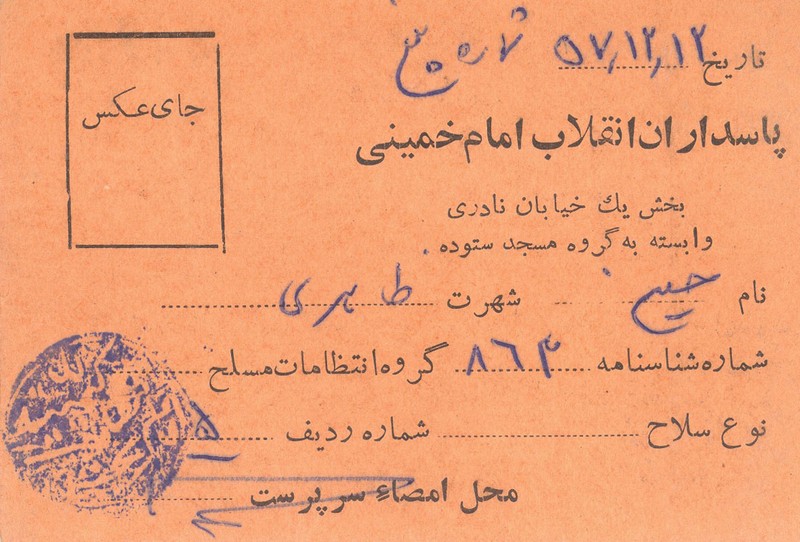 تاریخ ۵۷٫۱۲٫۱۲
جای عکس
پاسداران انقلاب امام خمینی
بخش یك خیابان نادری
وابسته به گروه مسجد ستوده
نام حسین شهرت طاهری
شماره شناسنامه ۸۶۴ گروه انتظامات مسلح
نوع سلاح شماره ردیف
محل امضاءِ سرپرست